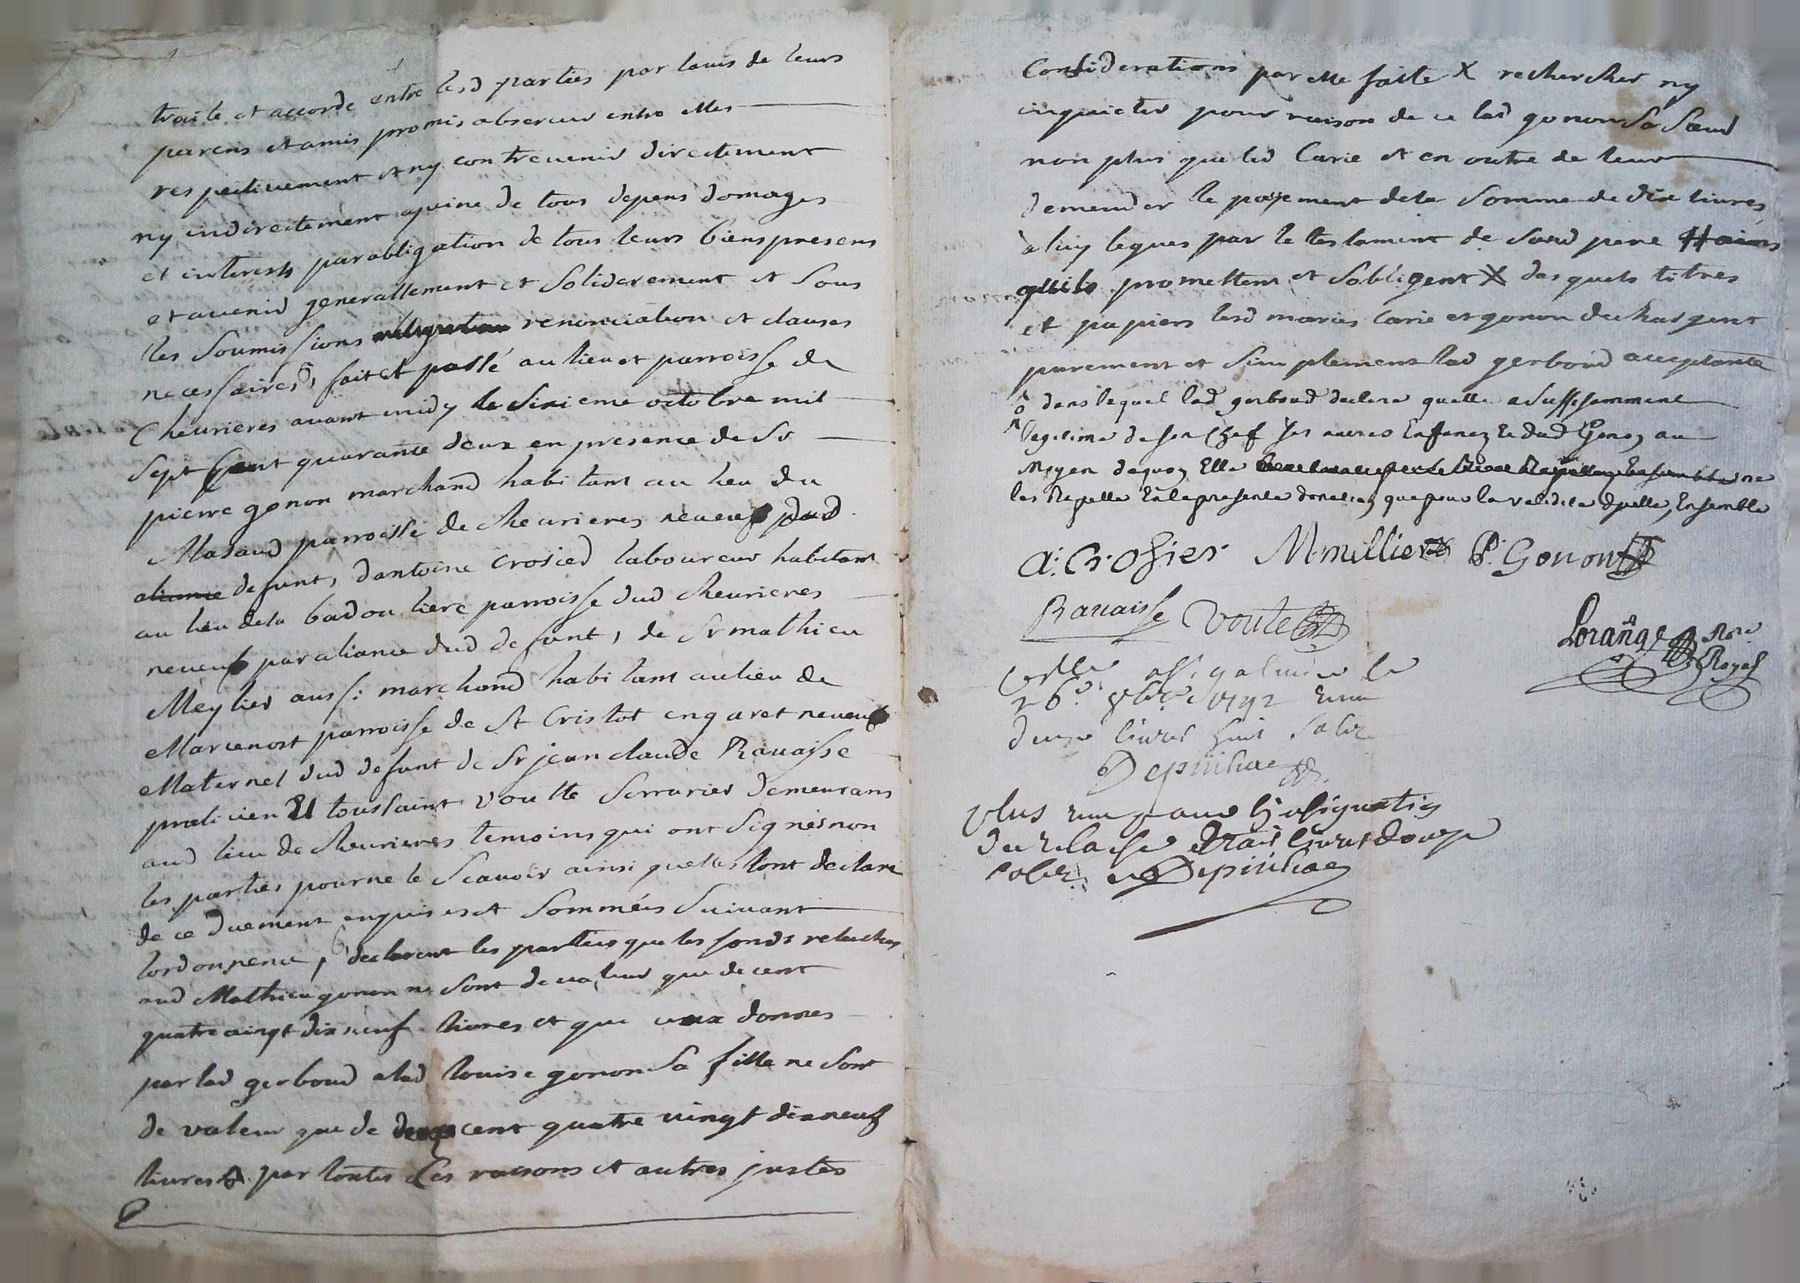 traité et accordé entre lesd parties par lavis de leurs
parens et amis promis observer entre elles
respectivement et ny contrevenir directement
ny indirectement a peine de tous depens domages
et interests par obligation de tous leurs biens presens
et avenir generallement et soliderement et sous
les soumissions renonciation et clauses
necessaires, fait et passé au lieu et parroisse de
Chevrieres avant midy le sixieme octobre mil
sept cent quarante deux en presence de Sr
pierre gonon marchand habitant au lieu du
Masaud parroisse de chevrieres neveu dud
aliance defunt, dantoine crosied laboureur habitant
au lieu dela badouliere parroisse dud chevrieres
neveu par aliance dud defunt, de Sr mathieu
Meylier aussi marchand habitant au lieu de
Marcenost parroisse de St Cristot en jaret neveu
Maternel dud defunt de Sr jean claude Ravaisse
praticien Et toussaint voutte serrurier demeurans
aud lieu de chevrieres temoins qui ont signés non
les parties pour ne le scavoir ainsi quelles lont declaré
de ce duement enquises et sommées suivant
lordonnence, declarent les parties que les fonds relachés
aud Mathieu gonon ne sont de valeur que de cent
quatre vingt dix neuf livres et que ceux donnes
par lad gerboud a lad louise gonon sa fille ne sont
de valeur que de cent quatre vingt dix neuf
livres par toutes ces raisons et autres justes
Considerations par elle faite X rechercher ny
inquieter pour raison de ce lad gonon sa sœur
non plus que led Carie et en outre de leur
demender le payement dela somme de dix livres
a luy legués par le testament de sond pere
quils promettent et sobligent X desquels titres
et papiers lesd mariés Carie et gonon dechargent
purement et simplement lad gerboud acceptante
dans lequel lad gerboud declare quelle a suffisamment
legitimé de son chef les autres Enfens dud Gonon au
Moyen dequoy Elle ne
les Rapelle En la presente donation que pour la validité dycelle, Ensemble
A: Crosier M millier P: Gonon
Ravaisse Voute
Lorange Nore
Royal
26e 8bre 1742
douze livres huit sols
Depinhac
plus
trois livres douze
sols Depinhac